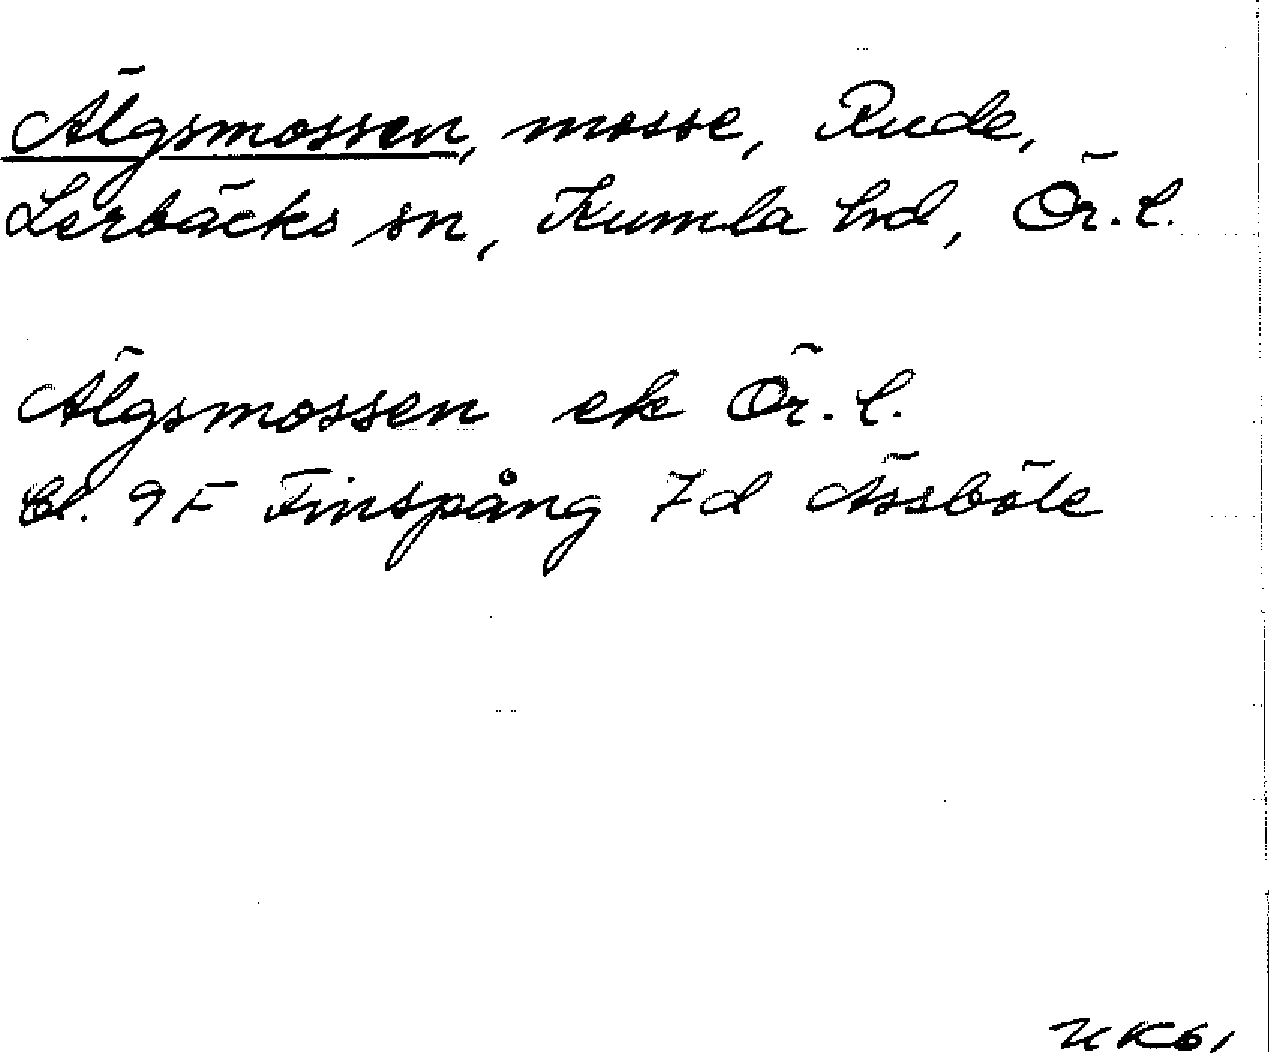 Älgsmossen, mosse, Rude,
Lerbäcks sn, Kumla hd, Ör. l.
Älgsmossen ek Ör. l.
bl. 9F Finspång 7d Åssböle